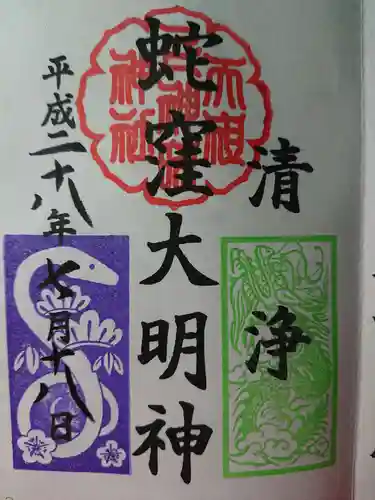 清浄
蛇窪大明神
平成二十八年七月十八日